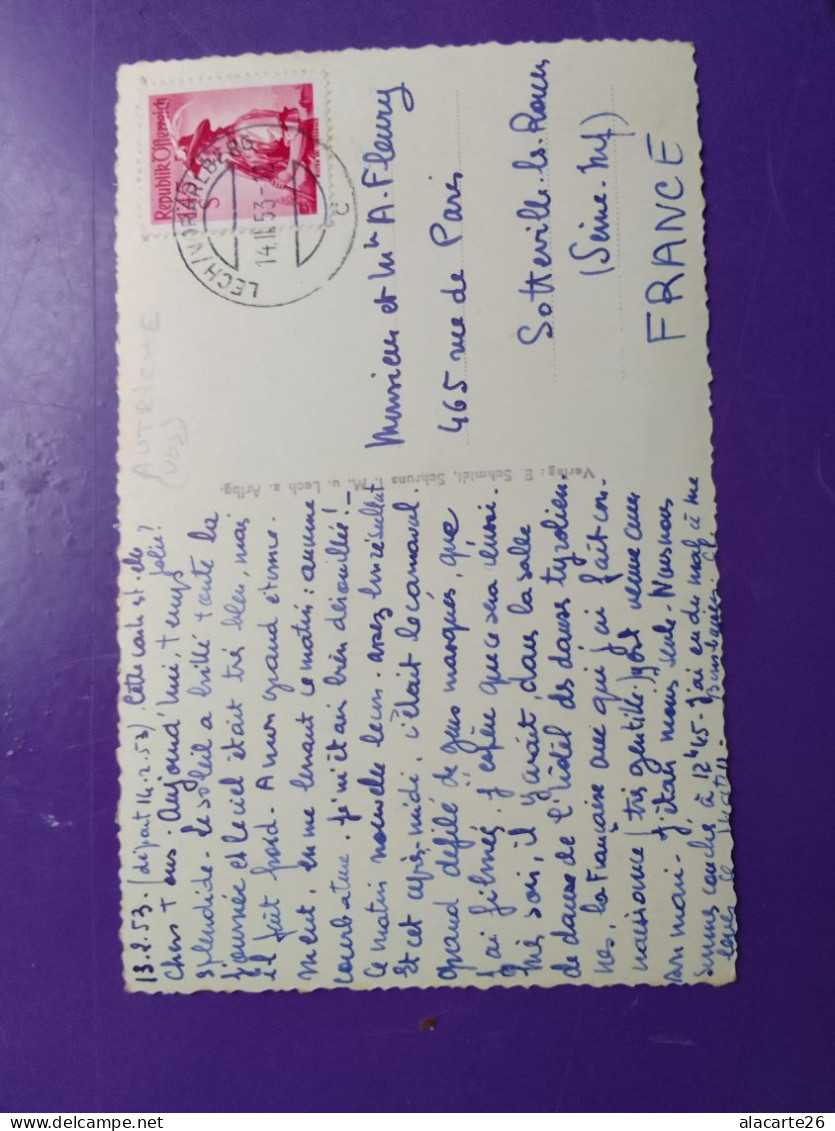 13.2.53. (départ 14.2.53) Cette carte est-elle jolie?
Chers Tous. Aujourd'hui, temps
splendide. Le soleil a brillé toute la
journée et le ciel était très bleu, mais
il fait froid. A mon grand étonne-
ment, en me levant ce matin : aucune
courbature. Je m'étais bien dérouillée! -
Ce matin nouvelle leçon. assez bon résultat
Et cet après-midi, c'était le carnaval.
grand défilé de gens masqués, que
j'ai filmés. J'espère que ce sera réussi.
soir, il y avait, dans la salle
de danse de l'hôtel des danses tyrolien-
nes, la Française avec qui j'ai fait con-
naissance (très gentille) est venue avec
son mari. J'étais moins seule. Nous nous
sommes couchés à 12h45. J'ai eu du mal à me
lever ce matin.
Monsieur et Mme A. Fleury
465 rue de Paris
Sotteville-les-Rouen
(Seine-Inf)
FRANCE
AUTRICHE
Verlag: E. Schmidt, Schruns i. M. u. Lech a. Arlbg.
Republik Österreich
LECH (VORARLBERG)
14.II.53
c
alacarte26